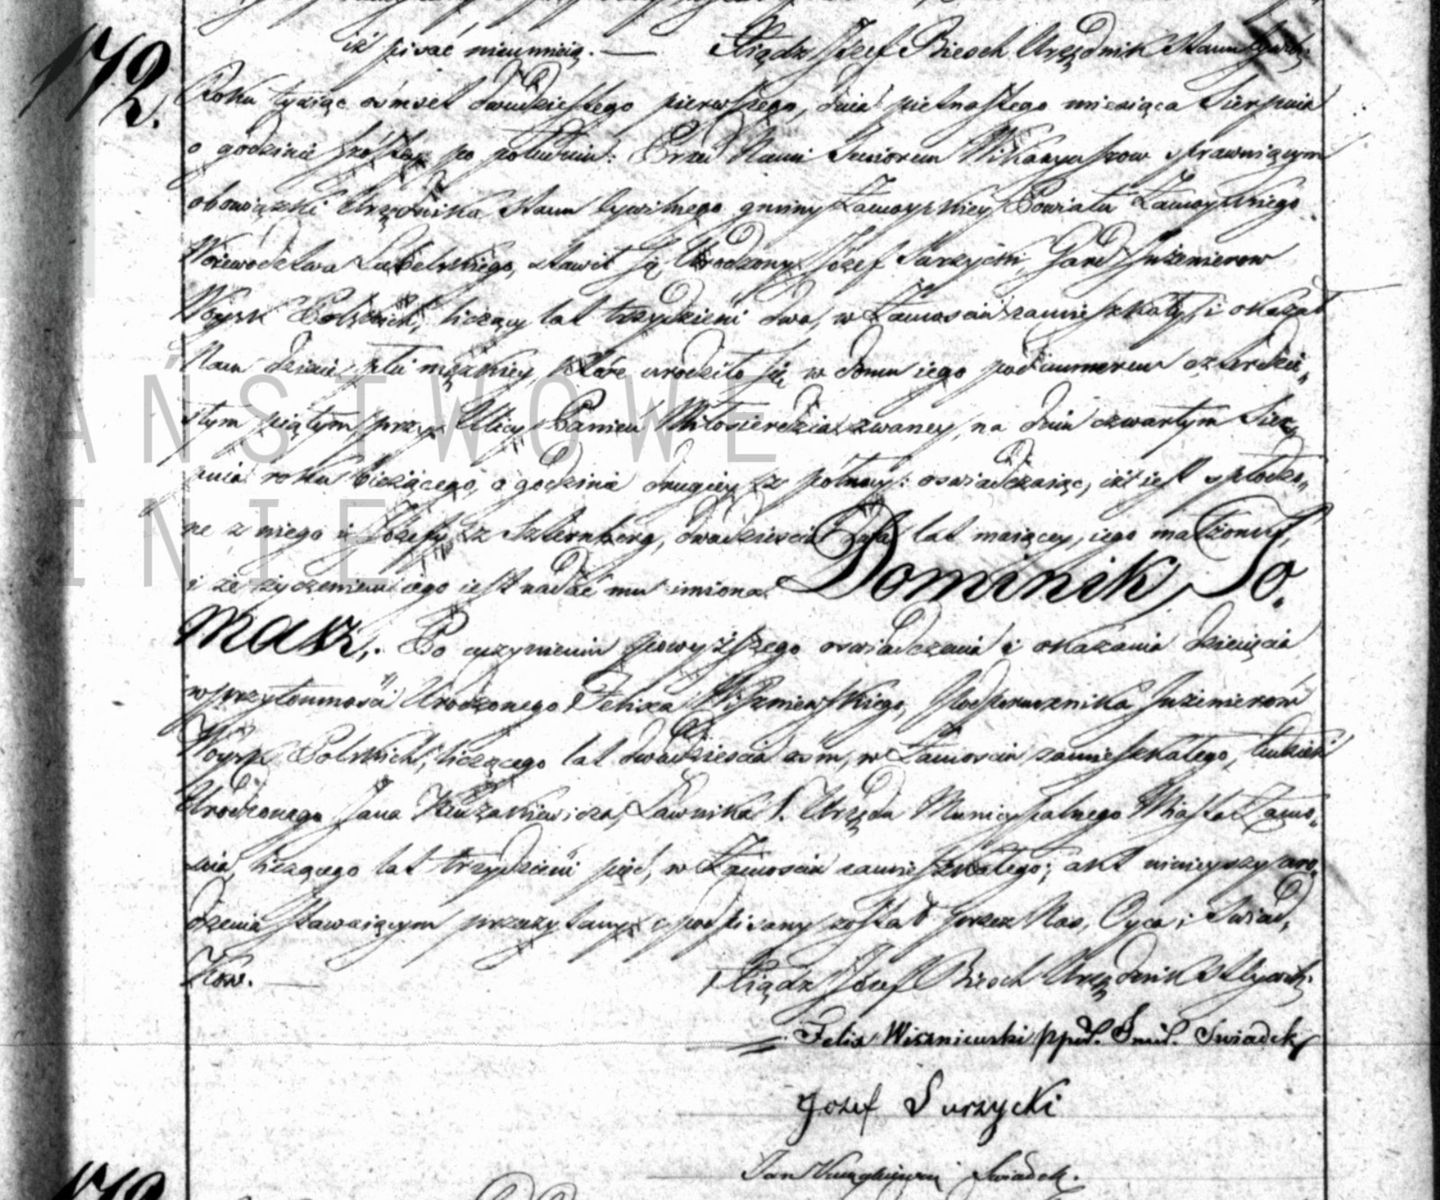 iż pisać nieumieią. — Xiądz Józef Biesch Urzędnik Stanu Cywil.
172.
Roku tysiąc ośmset dwudziestego pierwszego, dnia piętnastego miesiąca Sierpnia
o godzinie szóstey po południu: Przed Nami Seniorem Wikaryuszow sprawuiącym
obowiązki Urzędnika Stanu Cywilnego gminy Zamoyskiey Powiatu Zamoyskiego
Woiewództwa Lubelskiego, stawił się Urodzony Józef Surzycki, Gard Inżenierow
Woysk Polskich, liczący lat trzydzieści dwa, w Zamościu zamieszkały, i okazał
Nam dziecie płci męzkiey, które urodziło się w domu iego pod numerem czterdzie„
stym piątym przy Ulicy Panien Miłosierdzia zwaney, na dniu czwartym Sier„
pnia roku bieżącego, o godzinie drugiey z północy: oswiadczaiąc, iż iest spłodzo„
ne z niego i Józefy z Szternberg, dwadzieścia lat maiącey, iego małżonki,
i że życzeniem iego iest nadać mu imiona Dominik To„
masz,. Po uczynieniu powyższego oswiadczenia i okazania dziecięcia
w przytomności Urodzonego Felixa Wiszniewskiego, Podporucznika Inżenierów
Woysk Polskich, liczącego lat dwadzieścia osm, w Zamościu zamieszkałego, tudzież
Urodzonego Jana Kuczakiewicza, Ławnika Urzędu Municypalnego Miasta Zamo„
scia, liczącego lat trzydzieści pięć, w Zamościu zamieszkałego; akt ninieyszy uro„
dzenia stawaiącym przeczytany i podpisany został przez Nas, Oyca i Swiad„
kow. —
Xiądz Józef Biesch Urzędnik S. Cywil.
Felix Wiszniewski ppor. Swiadek
Jozef Surzycki
Jan Swiadek.
173